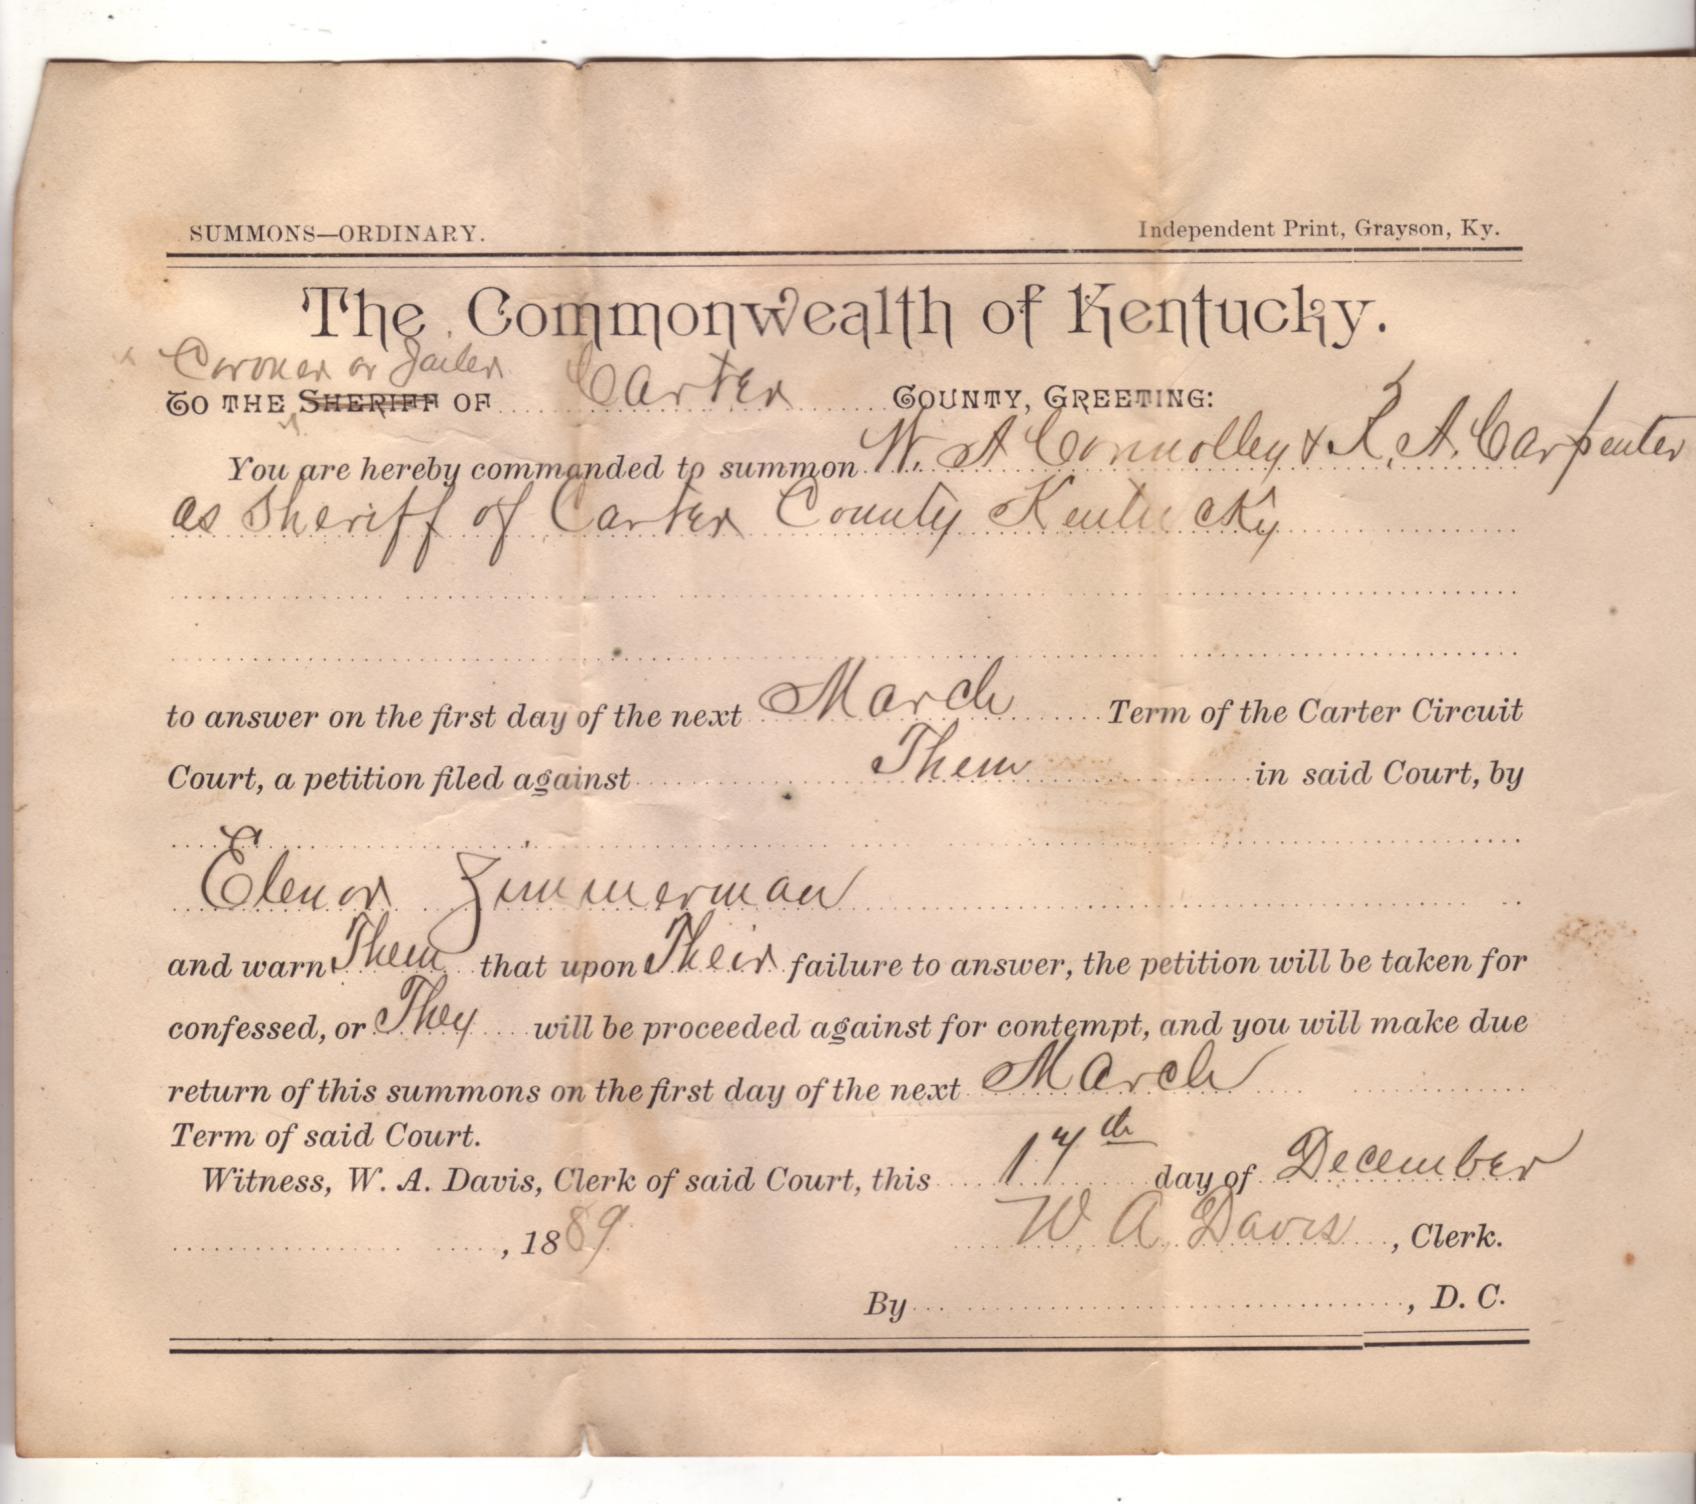 SUMMONS—ORDINARY. Independent Print, Grayson, Ky.
The Commonwealth of Kentucky.
Coroner or Jailer
TO THE SHERIFF OF Carter COUNTY, GREETING:
You are hereby commanded to summon W. A Connolley & R. A. Carpenter
as Sheriff of Carter County Kentucky
to answer on the first day of the next March Term of the Carter Circuit
Court, a petition filed against Them in said Court, by
Elenor Zimmerman
and warn Them that upon Their failure to answer, the petition will be taken for
confessed, or They will be proceeded against for contempt, and you will make due
return of this summons on the first day of the next March
Term of said Court.
Witness, W. A. Davis, Clerk of said Court, this 17th day of December
, 1889 W. A. Davis, Clerk.
By , D. C.